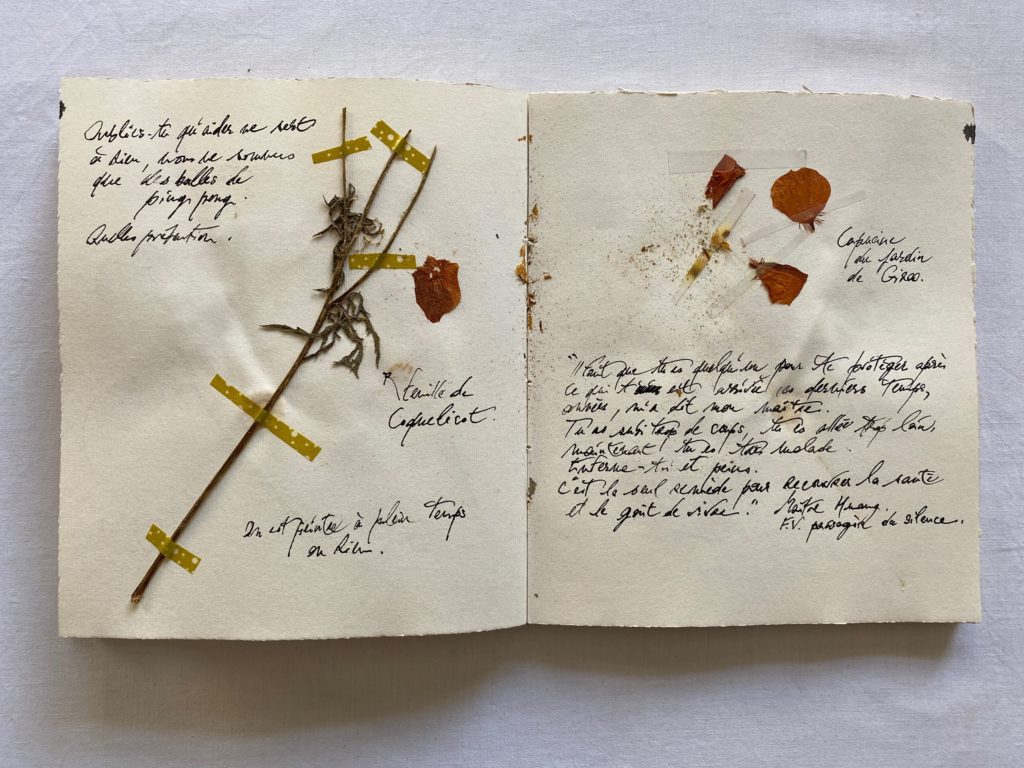 Oublies-tu qu'aider ne sert
à rien, nous ne sommes
que des balles de
ping pong.
Quelle prétention.
Feuille de
Coquelicot.
on est peintre à plein temps
ou rien.
Capucine
du jardin
de Giroo.
"Il faut que tu es quelqu'un pour te protéger après
ce qui t'est arrivée ces derniers temps,
années, m'a dit mon maître.
Tu as subi trop de coups, tu es allée trop loin,
maintenant tu es très malade.
Enferme-toi et peins.
C'est le seul remède pour recouvrer la santé
et le goût de vivre." Maître Huang
F.V. passagère du silence.